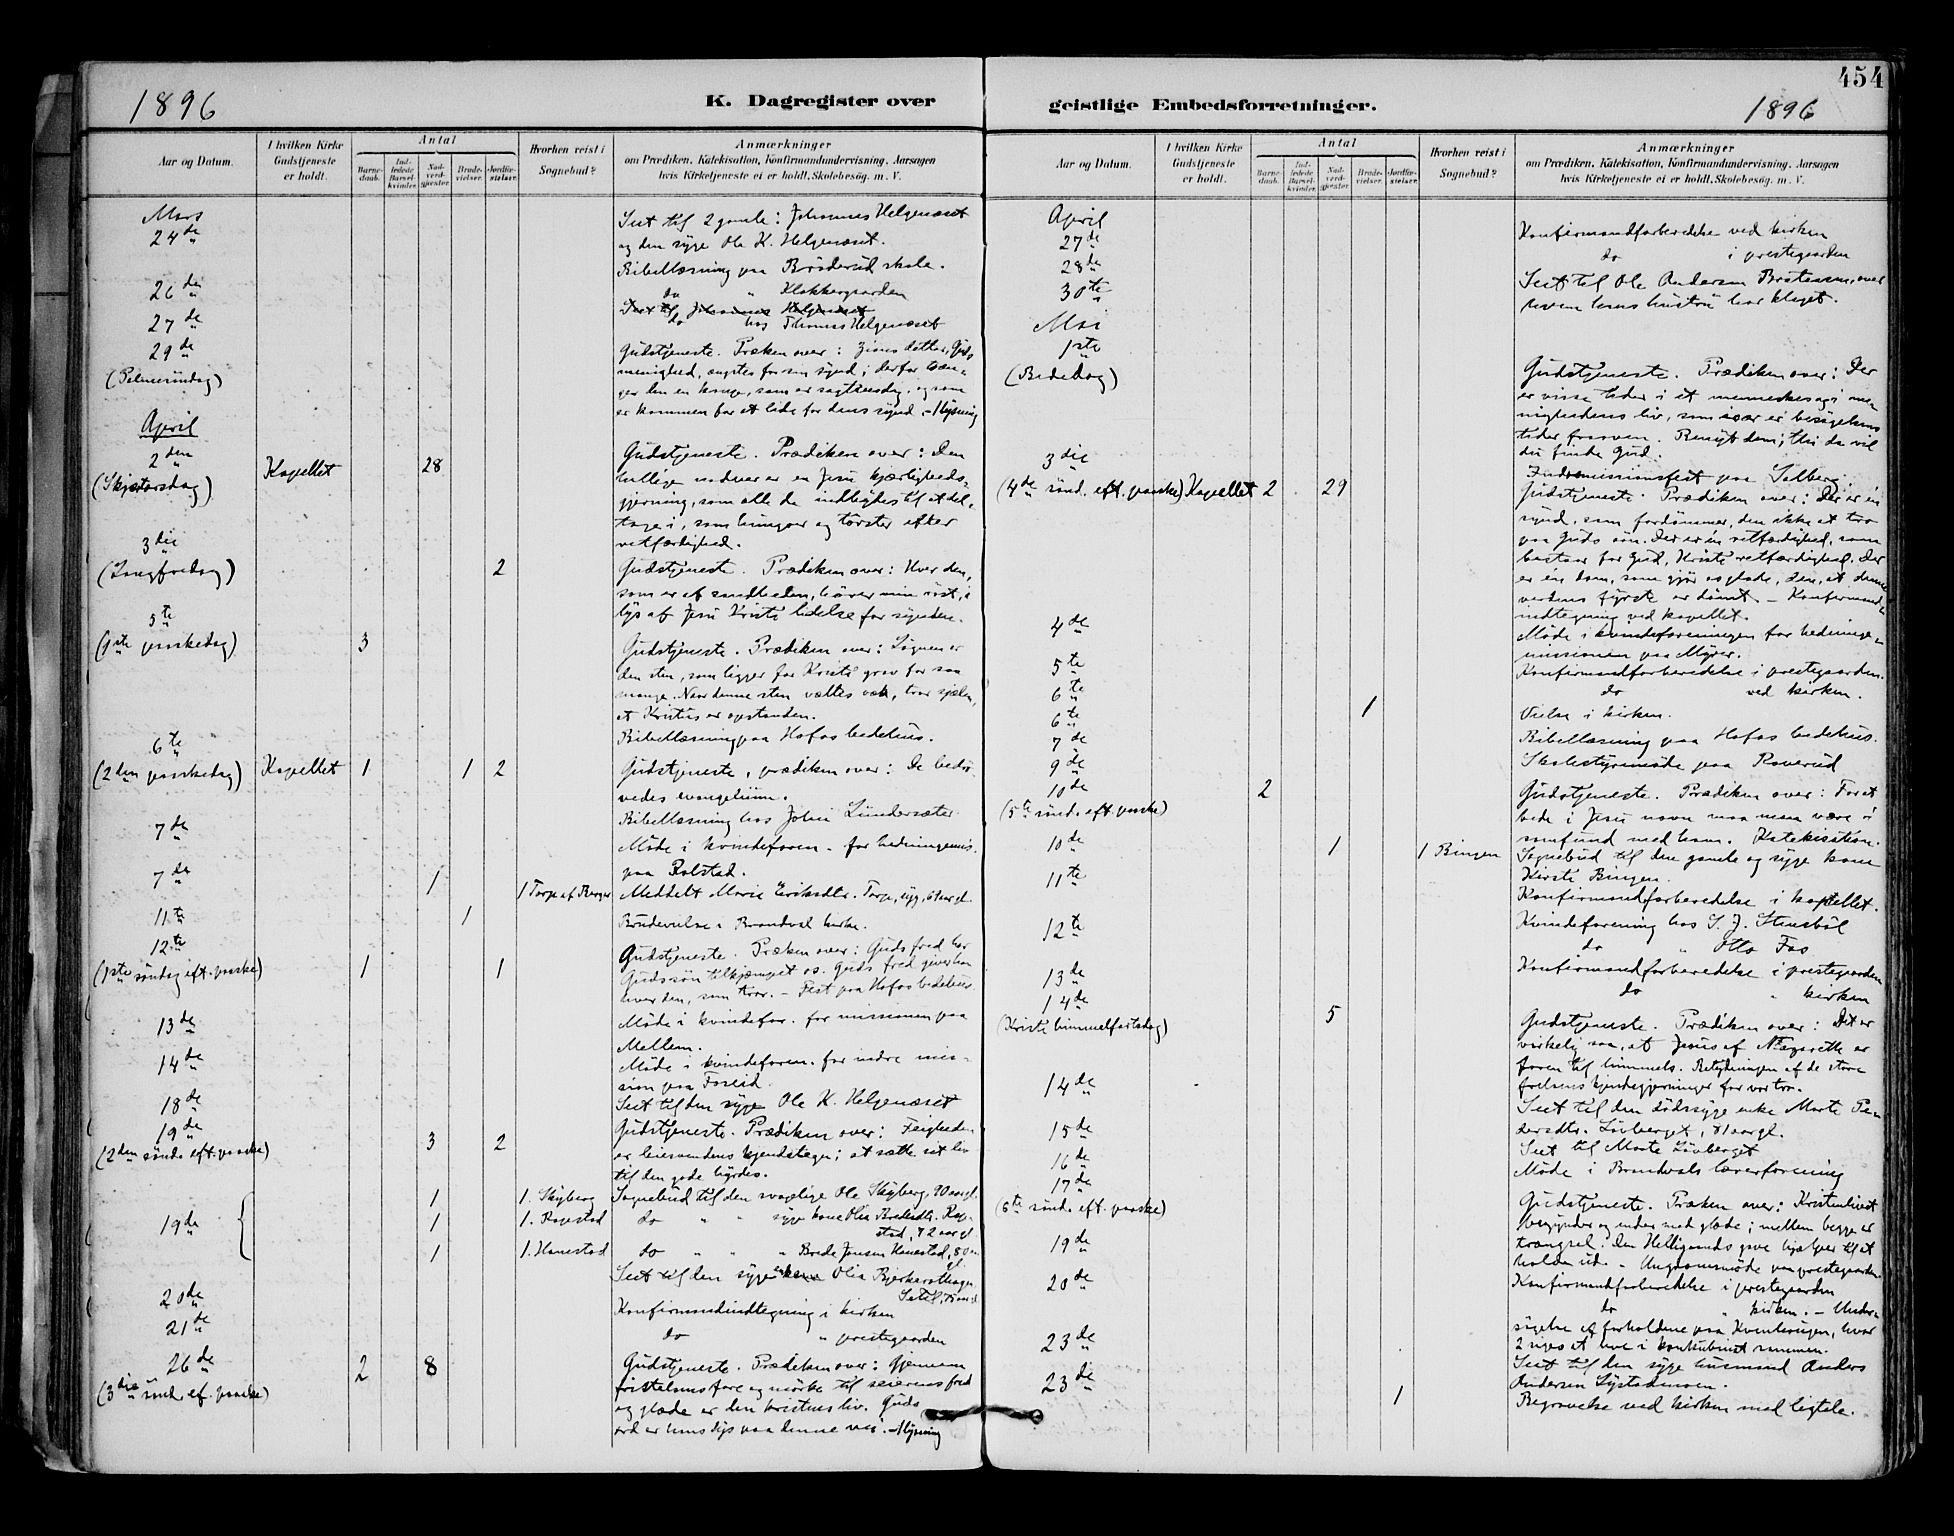 1896
K. Dagregister over
Aar og Datum.
I hvilken Kirke Gudstjeneste er holdt.
Antal
Barnedaab.
Indledede Barselkvinder.
Nadverdgjester
Brudevielser.
Jordfæstelser.
Hvorhen reist i Sognebud?
Anmærkninger
om Prædiken, Katekisation, Konfirmandundervisning, Aarsagen
hvis Kirketjeneste ei er holdt, Skolebesøg, m. V.
Mars
24de Seet til 2 gamle: Johannes Helgenæset
og den syge Ole K. Helgenæset.
Bibellæsning paa Bröderud skole.
26de do " Klokkergaarden
Seet til Johannes Helgenæset
27de do hos Thomas Helgenæset
29de Gudstjeneste. Præken over: Zions datter, Guds
(Palmesöndag) menighed, ængstes for sin synd; derfor træn-
ger den en konge, som er sagtmodig, og som
er kommen for at lide for dens synd. - Mysning
April
2den Kapellet 28 Gudstjeneste. Prædiken over: Den
(Skjærtorsdag) hellige nadver er en Jesu kjærligheds-
gjerning, som alle de indbydes til at del-
tage i, som hungrer og törster efter
retfærdighed.
3die
(Langfredag) 2 Gudstjeneste. Prædiken over: Hver den,
som er af sandheden, hörer min röst, i
lys af Jesu Kristi lidelse for synden.
5te
(1ste paaskedag) 3 Gudstjeneste. Prædiken over: Lögnen er
den sten, som ligger for Kristi grav for saa
mange. Naar denne sten væltes væk, tror sjælen,
at Kristus er opstanden.
6te Bibellæsning paa Hofos bedehus.
(2den paaskedag) Kapellet 1 1 2 Gudstjeneste, prædiken over: De bedrö-
vedes evangelium.
7de Bibellæsning hos Johu Lundersæter
Möde i kvindeforen. for hedningemis.
paa Rolstad.
7de 1 1 Torp af Berger Meddelt Marie Eriksdtr. Torp, syg, 67 aar gl.
11te 1 Brudevielse i Brandval kirke.
12te Gudstjeneste. Præken over: Guds fred har
(1ste söndag eft. paaske) 1 1 Guds sön tilkjæmpet os. Guds fred giver han
hver den, som tror. - Fest paa Hofos bedehus
13de Möde i kvindefor. for missionen paa
Mellem.
14de Möde i kvindeforen. for indre mis-
sion paa Foseid.
18de Seet til den syge Ole K. Helgenæset
19de Gudstjeneste. Prædiken over: Feigheden
(2den sönd. eft. paaske) 3 2 er leiesvendens kjendetegn; at sætte sit liv
til den gode hyrdes.
1 1. Skyberg Sognebud til den svagelige Ole Skyberg, 90 aar gl.
19de 1 1. Ropstad do " " syge kone Olia Bredesdtr. Rop-
stad, 72 aar gl
1 1. Hanestad do " " " Brede Jonsen Hanestad, 80 aar gl.
20de Seet til den syge enke Olia Bjerkerothagen,
Sætil, 75 aar gl
21de Konfirmandindtegning i kirken
do " prestegaarden
26de 2 8 Gudstjeneste. Prædiken over: Gjennem
(3die sönd. ef. paaske) fristelsens fare og mörke til seierens fred
og glæde er den kristnes liv. Guds
ord er hans lys paa denne vei. - Mysning
454
geistlige Embedsforretninger.
1896
Aar og Datum.
I hvilken Kirke Gudstjeneste er holdt.
Antal
Barnedaab.
Indledede Barselkvinder.
Nadverdgjester
Brudevielser.
Jordfæstelser.
Hvorhen reist i Sognebud?
Anmærkninger
om Prædiken, Katekisation, Konfirmandundervisning, Aarsagen
hvis Kirketjeneste ei er holdt, Skolebesøg, m. V.
April
27de Konfirmandforberedelse ved kirken
28de do i prestegaarden
30te Seet til Ole Andersen Bratmoen, over
hvem hans hustru har klaget.
Mai
1ste Gudstjeneste. Prædiken over: Der
(Bededag) er visse tider i et menneskes og i me-
nighedens liv, som især er besögelsens
tider fraoven. Benyt dem; thi da vil
du finde Gud.
3die Indremissionsfest paa Solberg:
(4de sönd. eft. paaske) Kapellet 2 29 Gudstjeneste. Prædiken over: Der er én
synd, som fordömmer, den ikke at tro
paa Guds sön. Der er én retfærdighed, som
bestaar for Gud, Kristi retfærdighed. Der
er en dom, som gjör os glade, den, at denne
verdens fyrste er dömt. - Konfirmand-
indtegning ved kapellet.
4de Möde i kvindeforeningen for hedninge-
missionen paa Myrer.
5te Konfirmandforberedelse i prestegaarden.
6te do ved kirken.
6te 1 Vielse i kirken.
7de Bibellæsning paa Hofos bedehus.
9de Skolestyremöde paa Roverud
10de 2 Gudstjeneste. Prædiken over: For at
(5te sönd. eft. paaske) bede i Jesu navn maa man være i
samfund med ham. Katekisation.
10de 1 1 Bingen Sognebud til den gamle og syge kone
Kersti Bingen.
11te Konfirmandforberedelse i kapellet.
12te Kvindeforening hos S. J. Stensböl
do " Otto Fos
13de Konfirmandforberedelse i prestegaarden
14de do " kirken
(Kristi himmelfartsdag) 5 Gudstjeneste. Prædiken over: Det er
virkelig saa, at Jesus af Nazareth er
faren til himmels. Betydningen af de store
frelsens kjendsgjerninger for vor tro.
14de Seet til den dödssyge enke Marte Pe-
dersdtr. Lövberget, 81 aar gl.
15de Seet til Marte Lövberget
16de Möde i Brandvals lærerforening
17de Gudstjeneste. Præken over: Kristenlivet
(6te sönd. eft. paaske) begynder og ender med glæde; mellem begge er
trængsel. Den Helligaands gave hjælper til at
19de holde ud. - Ungdomsmöde paa prestegaarden.
20de Konfirmandforberedelse i prestegaarden
do " kirken. - Under-
sögelse af forholdene paa Kventorugen, hvor
23de 2 siges at leve i konkubinat sammen.
Seet til den syge husmand Anders
Andersen Lystadmoen.
23de 1 Begravelse ved kirken med ligtale.